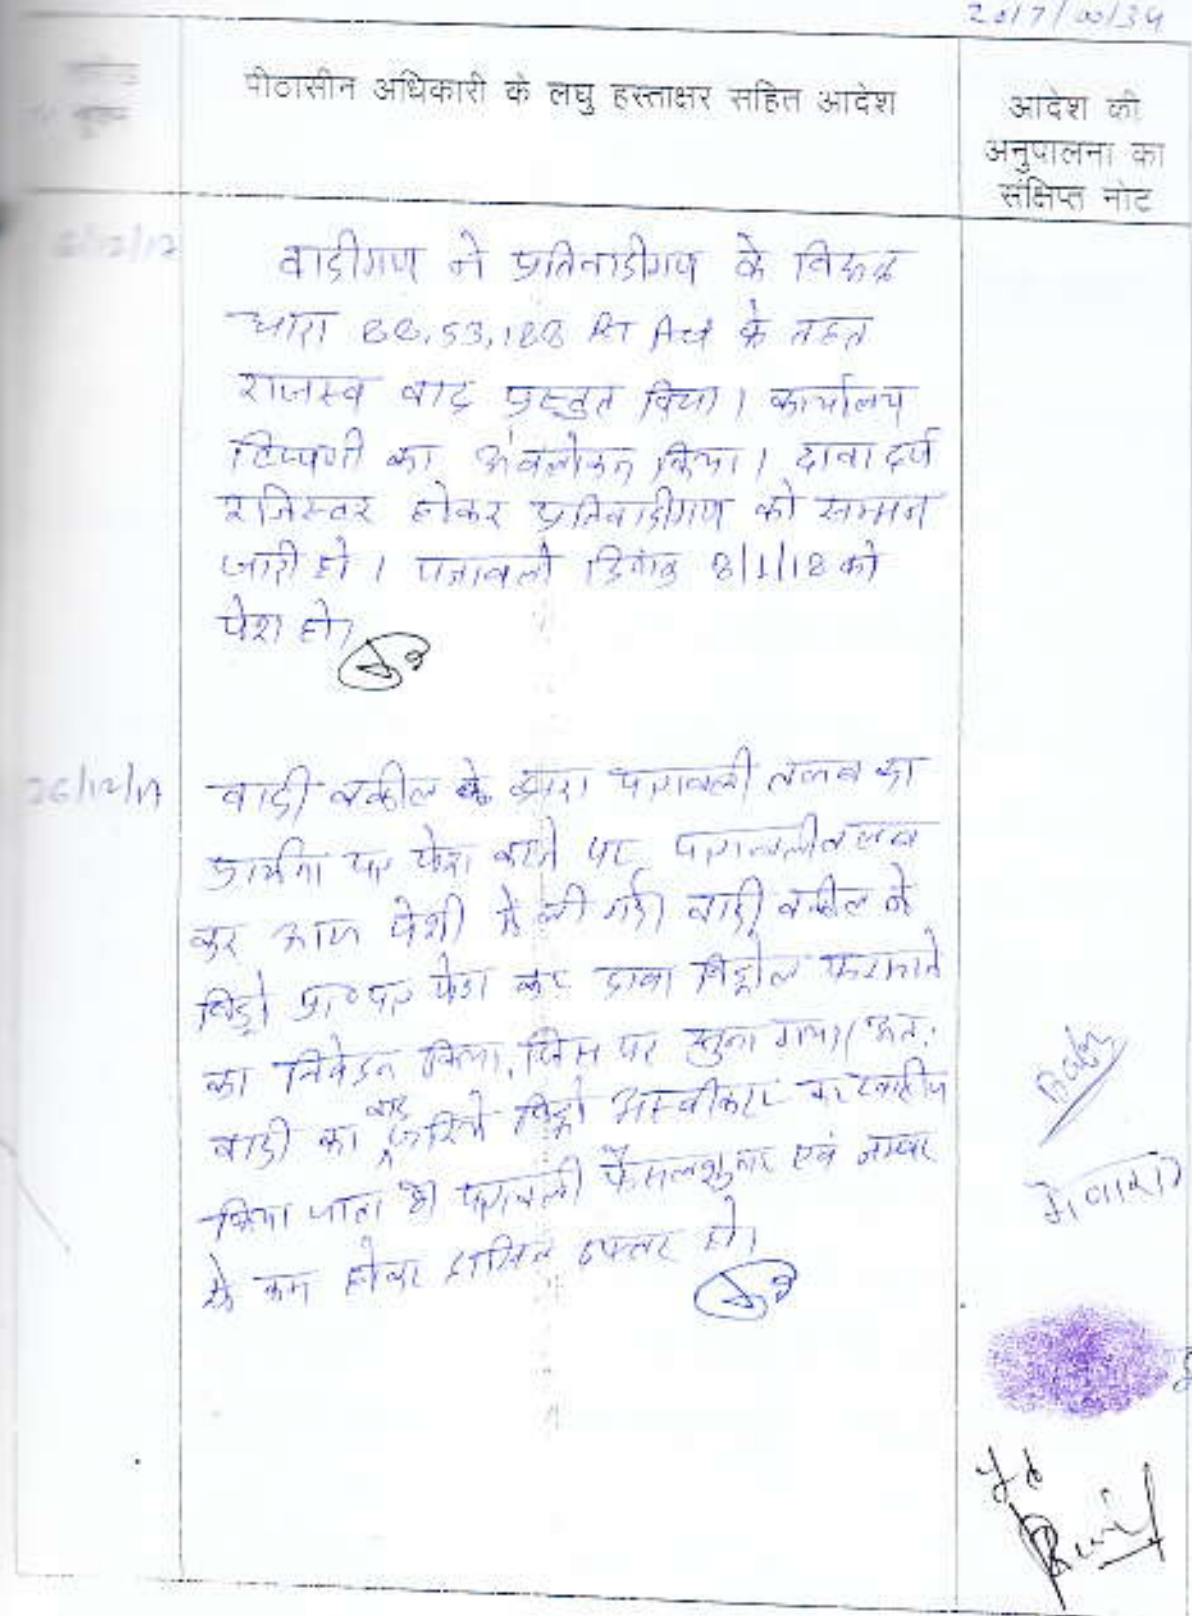 2017/00/34
पीठासीन अधिकारी के लघु हस्ताक्षर सहित आदेश
आदेश की
अनुपालना का
संक्षिप्त नोट
/12/17
वादीगण ने प्रतिवादीगण के विरूद्ध
धारा 88,53,188 RT Act के तहत
राजस्व वाद प्रस्तुत किया। कार्यालय
टिप्पणी का अवलोकन किया। दावा दर्ज
रजिस्टर होकर प्रतिवादीगण को सम्मन
जारी हो। पत्रावली दिनांक 8/1/18 को
पेश हो।
26/12/17
वादी वकील के द्वारा पत्रावली तलब का
प्रार्थना पत्र पेश करने पर पत्रावली तलब
कर आज पेशी में ली गई। वादी वकील ने
विड्रो प्रा० पत्र पेश कर दावा विड्रोल फरमाने
का निवेदन किया, जिस पर सुना गया। अत:
वादी का वाद जरिये विड्रो अस्वीकार कर खारीज
किया जाता है। पत्रावली फैसलशुमार एवं नम्बर
से कम होकर दाखिल दफ्तर हो।